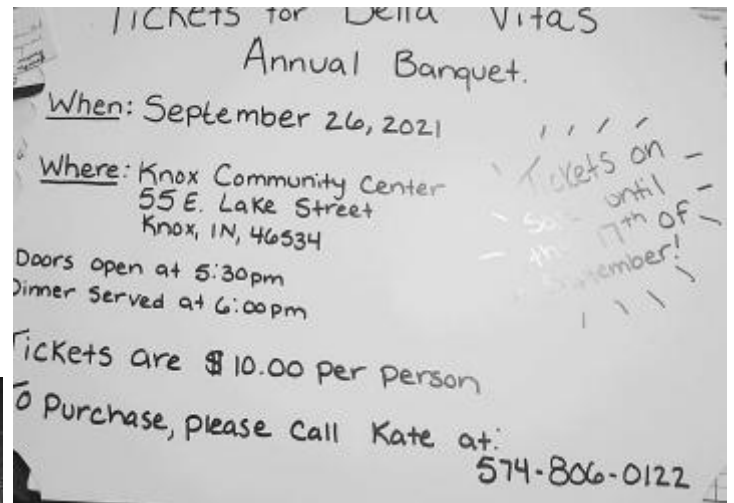 Tickets for Della Vitas
Annual Banquet.
When: September 26, 2021
Where: Knox Community Center
55 E. Lake Street
Knox, IN, 46534
Doors open at 5:30pm
Dinner Served at 6:00pm
Tickets are $10.00 per person
To Purchase, please call Kate at:
574-806-0122
Tickets on
Sale until
the 17th of
September!